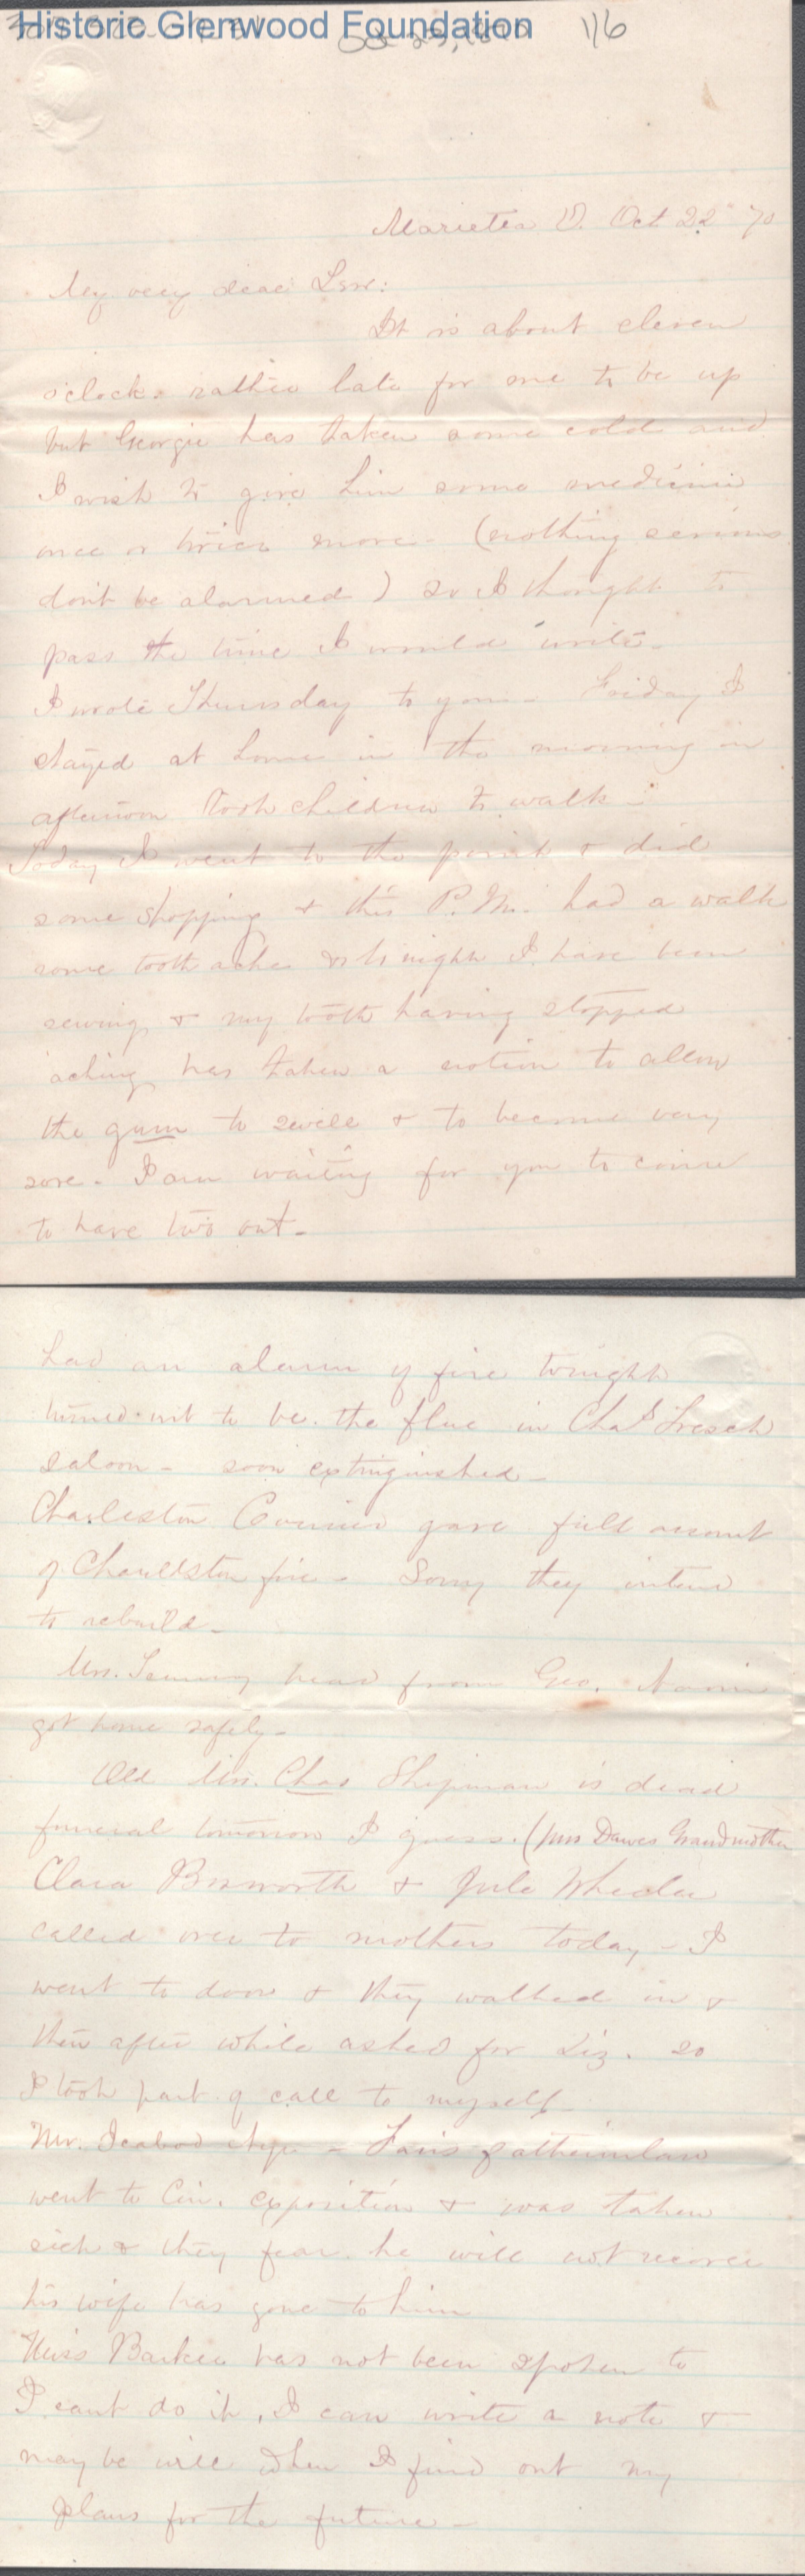 Historic Glenwood Foundation
116
Marietta O. Oct 22" 70
My very dear Love:
It is about eleven
o'clock. rather late for me to be up
but Georgie has taken some cold and
I wish to give him some medicine
once or twice more - (nothing serious
don't be alarmed) so I thought to
pass the time I would write -
I wrote Thursday to you - Friday I
stayed at home in the morning in
afternoon took children to walk -
Today I went to the point & did
some shopping & this P.M. had a walk
some tooth ache & to night I have been
sewing & my tooth having stopped
aching has taken a notion to allow
the gum to swell & to become very
sore - I am waiting for you to come
to have two out -
had an alarm of fire tonight
turned out to be the flue in Chas
saloon - soon extinguished -
Charleston Courier gave full account
of Charleston fire - Sorry they intend
to rebuild -
Mrs. heard from Geo.
got home safely -
Old Mrs. Chas Shipman is dead
funeral tomorrow I guess. (Mrs Dawes Grandmother
Clara Bosworth & Jule Wheeler
called over to mothers today - I
went to door & they walked in &
then after while asked for Liz. so
I took part of call to myself -
Mr. Icabod Nye - fatherinlaw
went to Cin. exposition & was taken
sick & they fear he will not recover
his wife has gone to him
Miss Barker has not been spoken to
I cant do it, I can write a note &
may be will when I find out my
plans for the future -